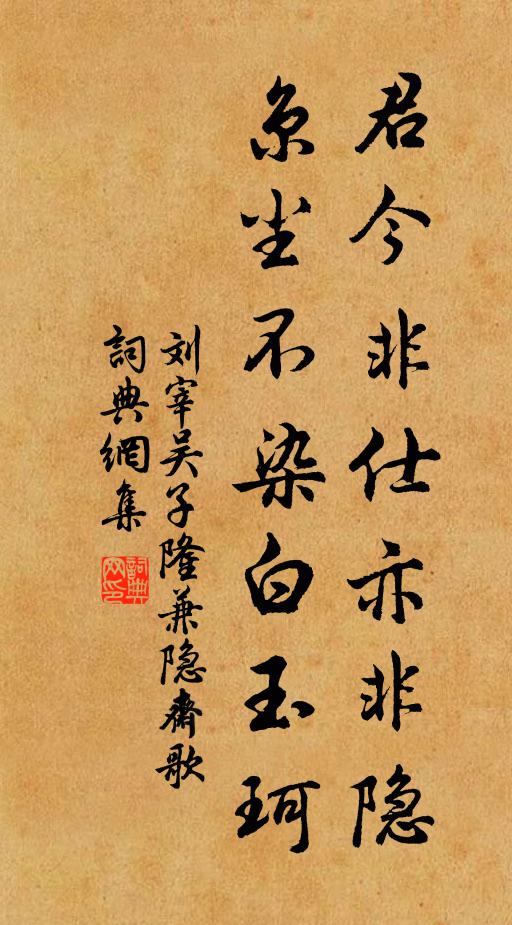 君今非仕亦非隐
京尘不染白玉珂
刘宰吴子隆兼隐齋歌
詞典網集
詞典网印